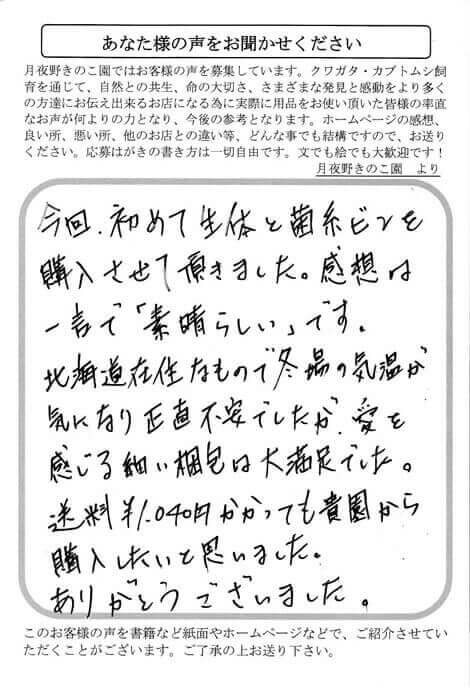 あなた様の声をお聞かせください
月夜野きのこ園ではお客様の声を募集しています。クワガタ・カブトムシ飼
育を通じて、自然との共生、命の大切さ、さまざまな発見と感動をより多く
の方達にお伝え出来るお店になる為に実際に用品をお使い頂いた皆様の率直
なお声が何よりの力となり、今後の参考となります。ホームページの感想、
良い所、悪い所、他のお店との違い等、どんな事でも結構ですので、お送り
ください。応募はがきの書き方は一切自由です。文でも絵でも大歓迎です！
月夜野きのこ園　より
今回、初めて生体と菌糸ビンを
購入させて頂きました。感想は
一言で「素晴らしい」です。
北海道在住なもので冬場の気温が
気になり正直不安でしたが、愛を
感じる細い梱包は大満足でした。
送料¥1,040円かかっても貴園から
購入したいと思いました。
ありがとうございました。
このお客様の声を書籍など紙面やホームページなどで、ご紹介させてい
ただくことがございます。ご了承の上お送り下さい。